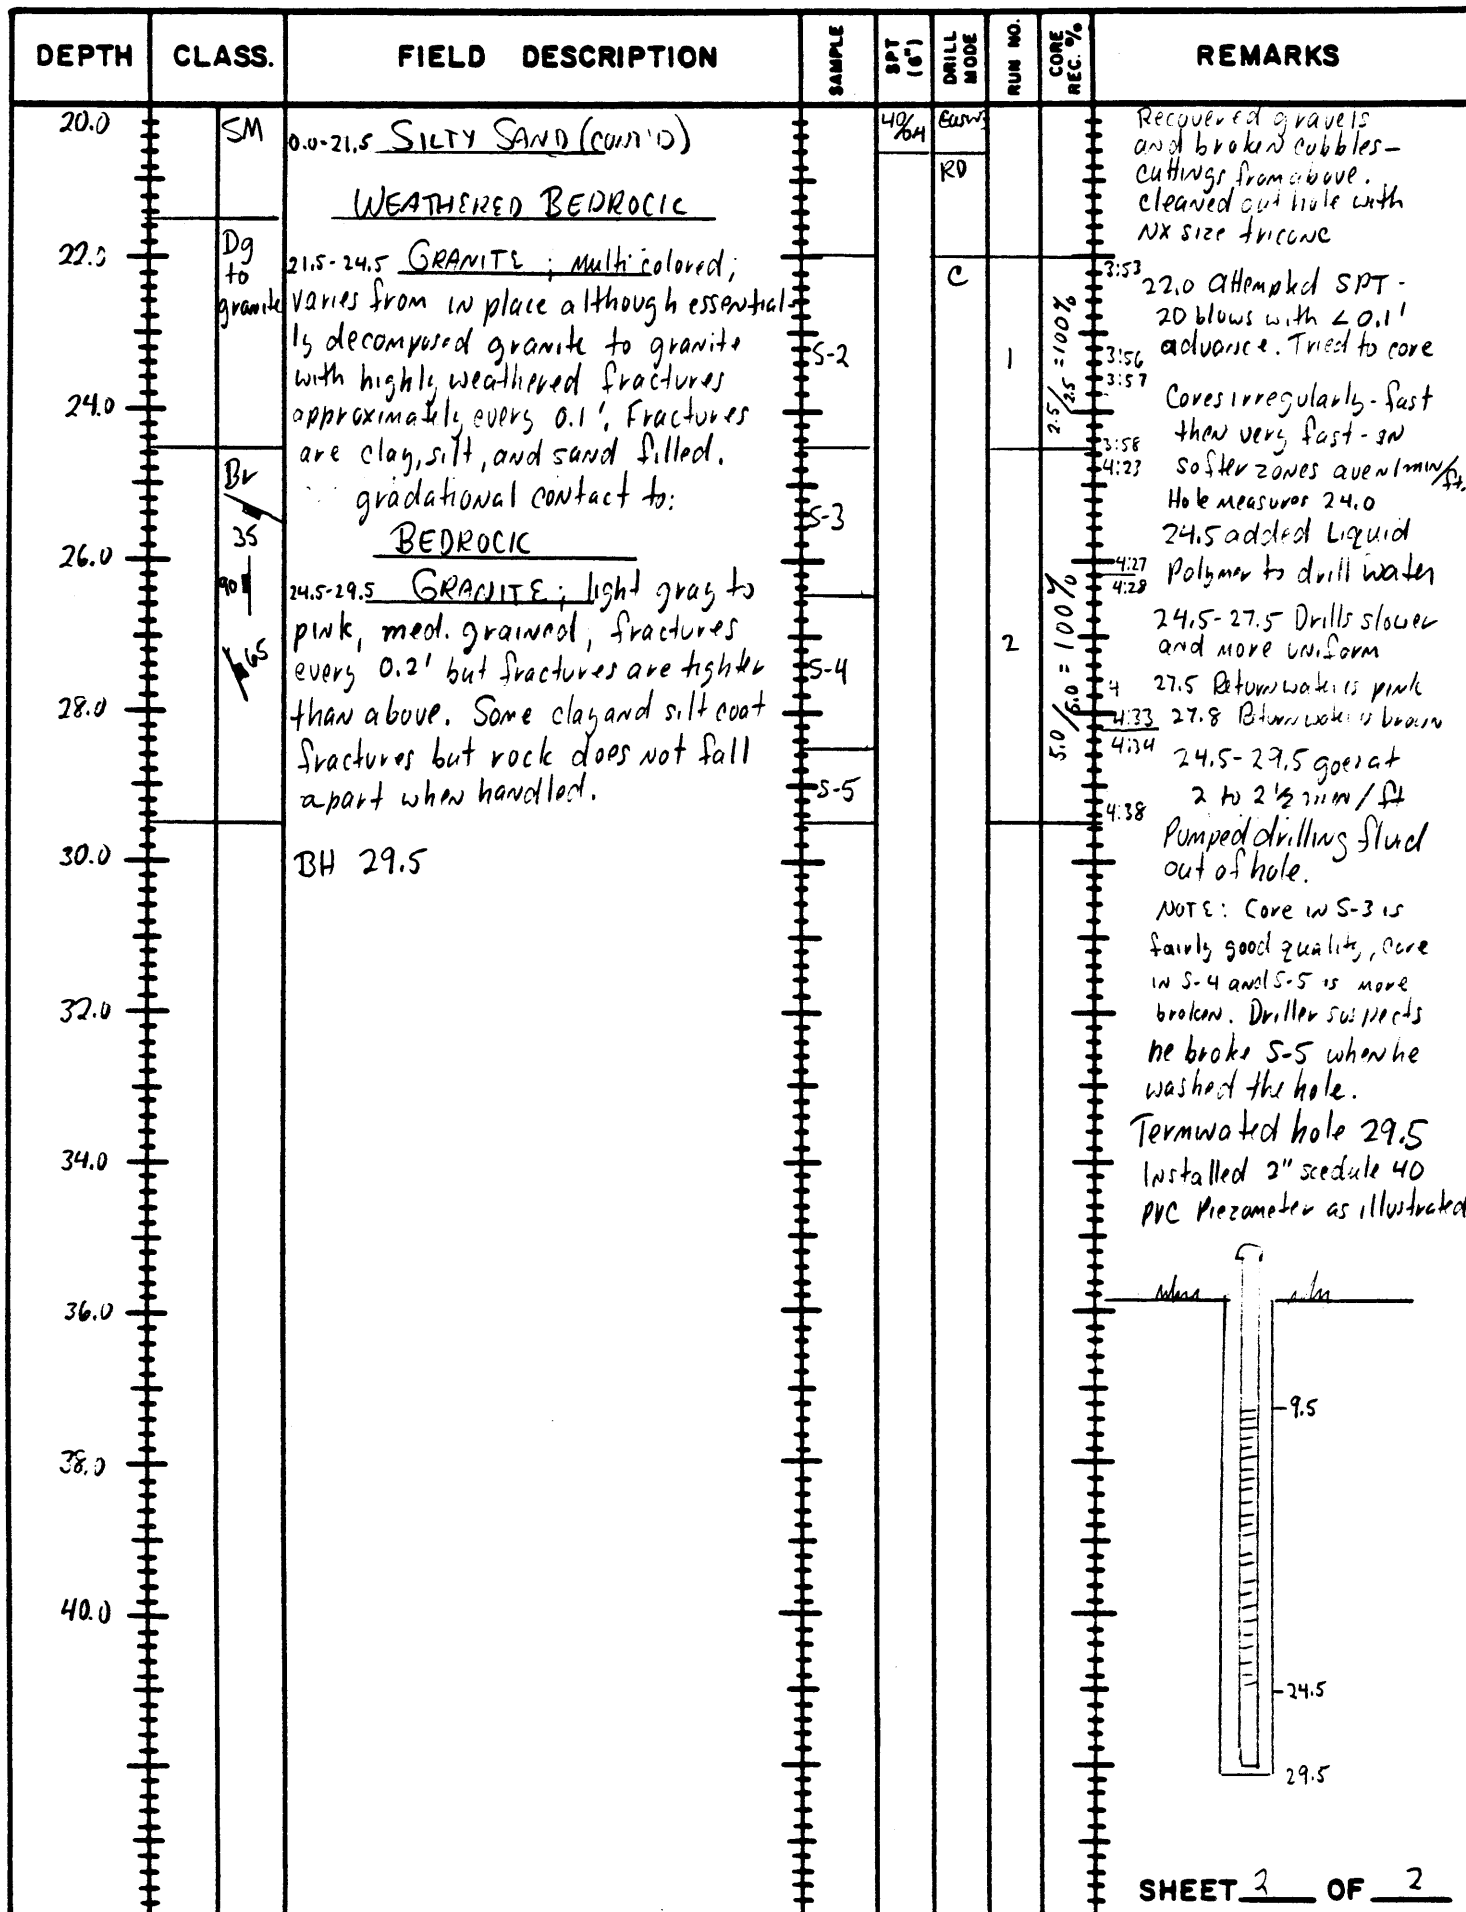 DEPTH
CLASS.
FIELD DESCRIPTION
SAMPLE
SPT (6")
DRILL MODE
RUN NO.
CORE REC. %
REMARKS
20.0
22.0
24.0
26.0
28.0
30.0
32.0
34.0
36.0
38.0
40.0
SM
Dg
to
granite
Br
35
90
65
0.0-21.5 SILTY SAND (CONT'D)
WEATHERED BEDROCK
21.5-24.5 GRANITE; Multicolored;
varies from in place although essential-
ly decomposed granite to granite
with highly weathered fractures
approximately every 0.1'. Fractures
are clay, silt, and sand filled.
gradational contact to:
BEDROCK
24.5-29.5 GRANITE; light gray to
pink, med. grained, fractures
every 0.2' but fractures are tighter
than above. Some clay and silt coat
fractures but rock does not fall
apart when handled.
BH 29.5
S-2
S-3
S-4
S-5
RD
C
1
2
2.5/2.5 = 100%
5.0/5.0 = 100%
3:53
3:56
3:57
3:58
4:23
4:27
4:28
4
4:33
4:34
4:38
Recovered gravels
and broken cobbles-
cuttings from above.
cleaned out hole with
NX size tricone
22.0 attempted SPT -
20 blows with < 0.1'
advance. Tried to core
Cores irregularly - fast
then very fast - in
softer zones 1min/ft.
Hole measures 24.0
24.5 added Liquid
Polymer to drill water
24.5-27.5 Drills slower
and more uniform
27.5 Return water is pink
27.8 Return water is brown
24.5-29.5 goes at
2 to 2 1/2 min/ft
Pumped drilling fluid
out of hole.
NOTE: Core in S-3 is
fairly good quality, core
in S-4 and S-5 is more
broken. Driller suspects
he broke S-5 when he
washed the hole.
Terminated hole 29.5
Installed 2" scedule 40
PVC Piezometer as illustrated
9.5
24.5
29.5
SHEET 2 OF 2